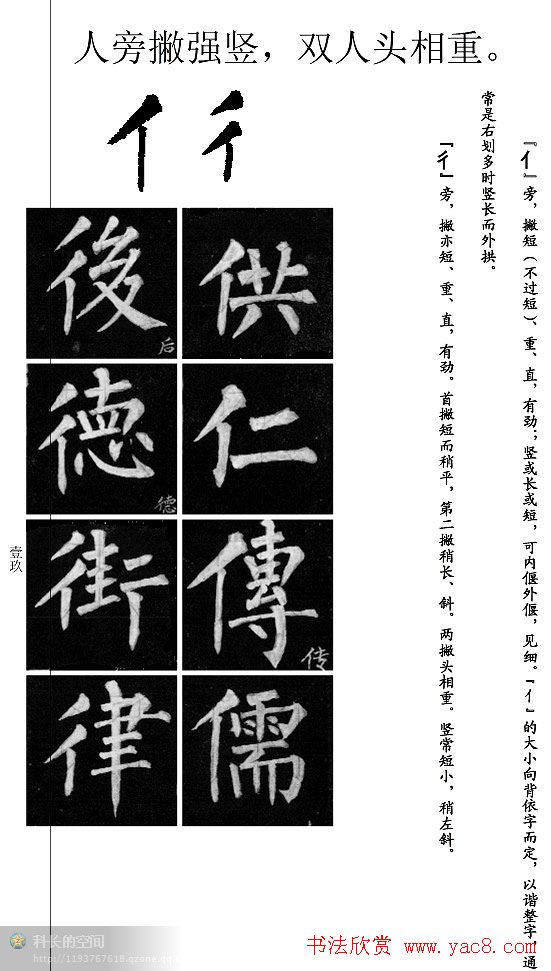 人旁撇强竖，双人头相重。
亻彳
『亻』旁，撇短（不过短）、重、直，有劲；竖或长或短，可内偃外偃，见细。『亻』的大小向背依字而定，以谐整字，通
常是右划多时竖长而外拱。
『彳』旁，撇亦短、重、直，有劲。首撇短而稍平，第二撇稍长、斜。两撇头相重。竖常短小，稍左斜。
後 后 供
德 德 仁
街 傳 传
律 儒
壹玖
科长的空间
http://1193767618.qzone.qq.
书法欣赏 www.yac8.com